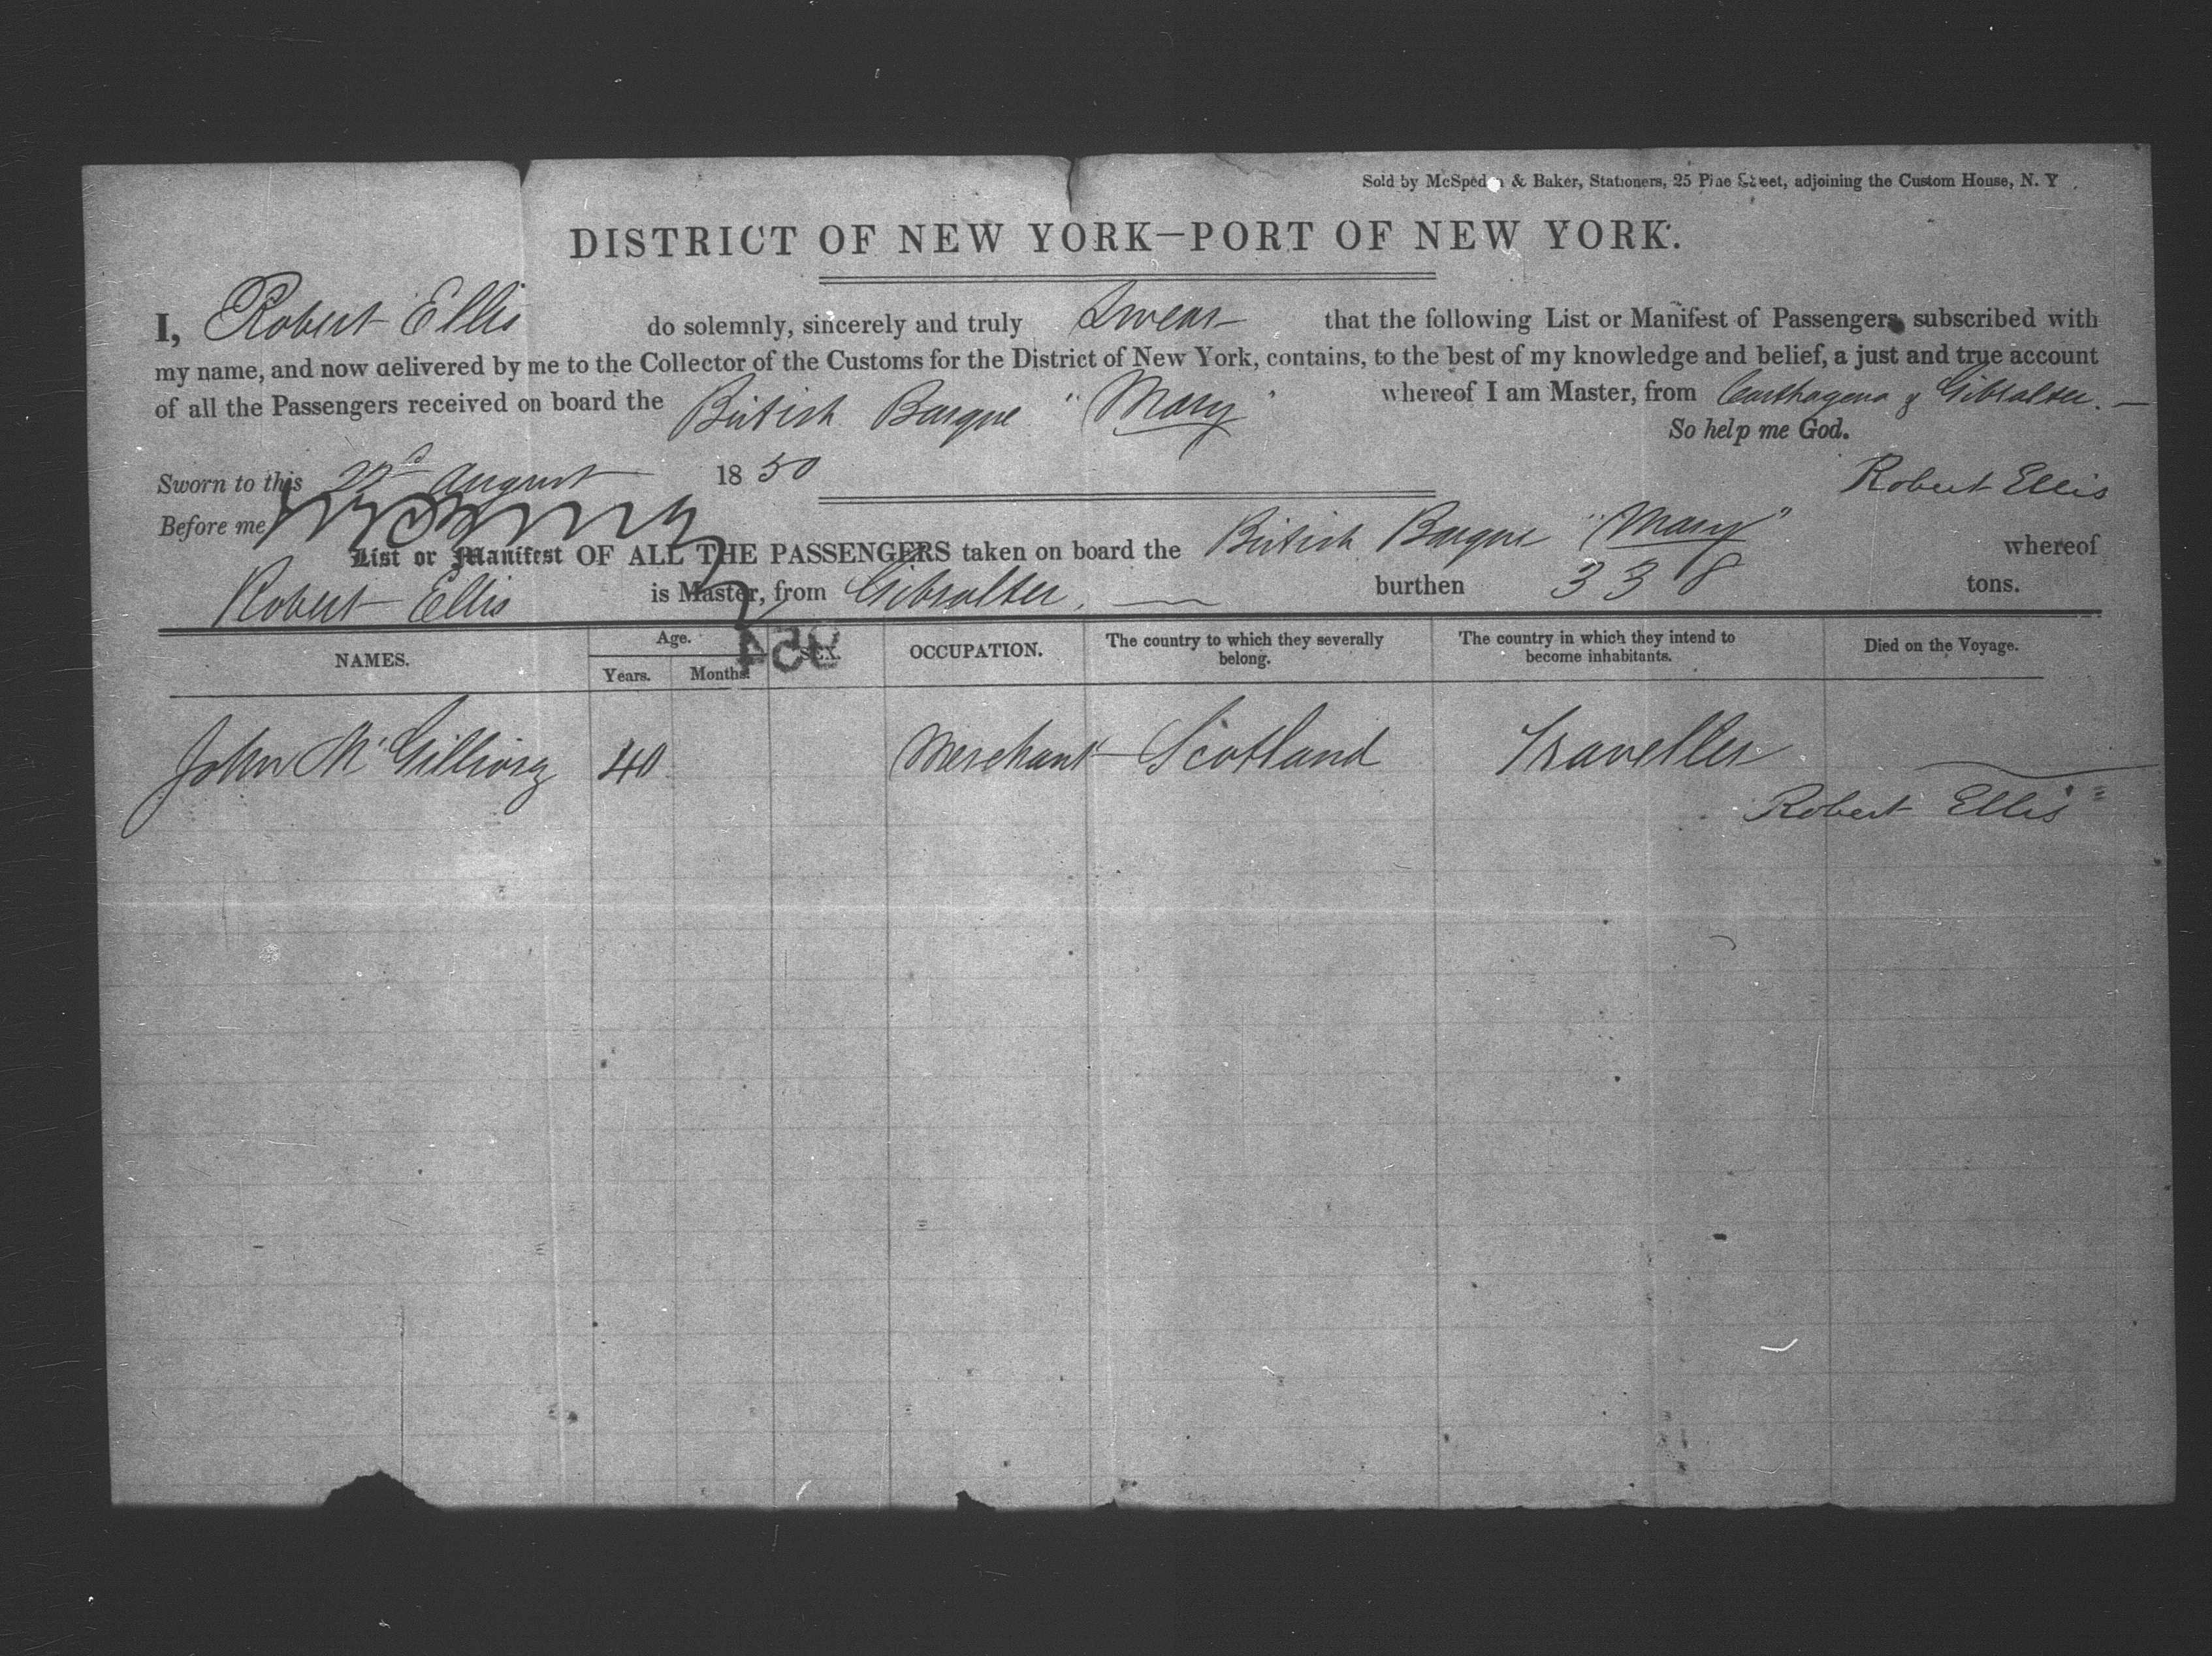 Sold by McSped & Baker, Stationers, 25 Pine Street, adjoining the Custom House, N. Y
DISTRICT OF NEW YORK—PORT OF NEW YORK.
I, Robert Ellis do solemnly, sincerely and truly Swear that the following List or Manifest of Passengers subscribed with
my name, and now delivered by me to the Collector of the Customs for the District of New York, contains, to the best of my knowledge and belief, a just and true account
of all the Passengers received on board the British Barque "Mary" whereof I am Master, from Carthagena & Gibralter.
So help me God.
Sworn to this August 1850
Robert Ellis
Before me
List or Manifest OF ALL THE PASSENGERS taken on board the British Barque "Mary" whereof
Robert Ellis is Master, from Gibralter. burthen 338 tons.
NAMES. Age. SEX. OCCUPATION. The country to which they severally belong. The country in which they intend to become inhabitants. Died on the Voyage.
Years. Months.
John 40 Merchant Scotland Traveller
Robert Ellis